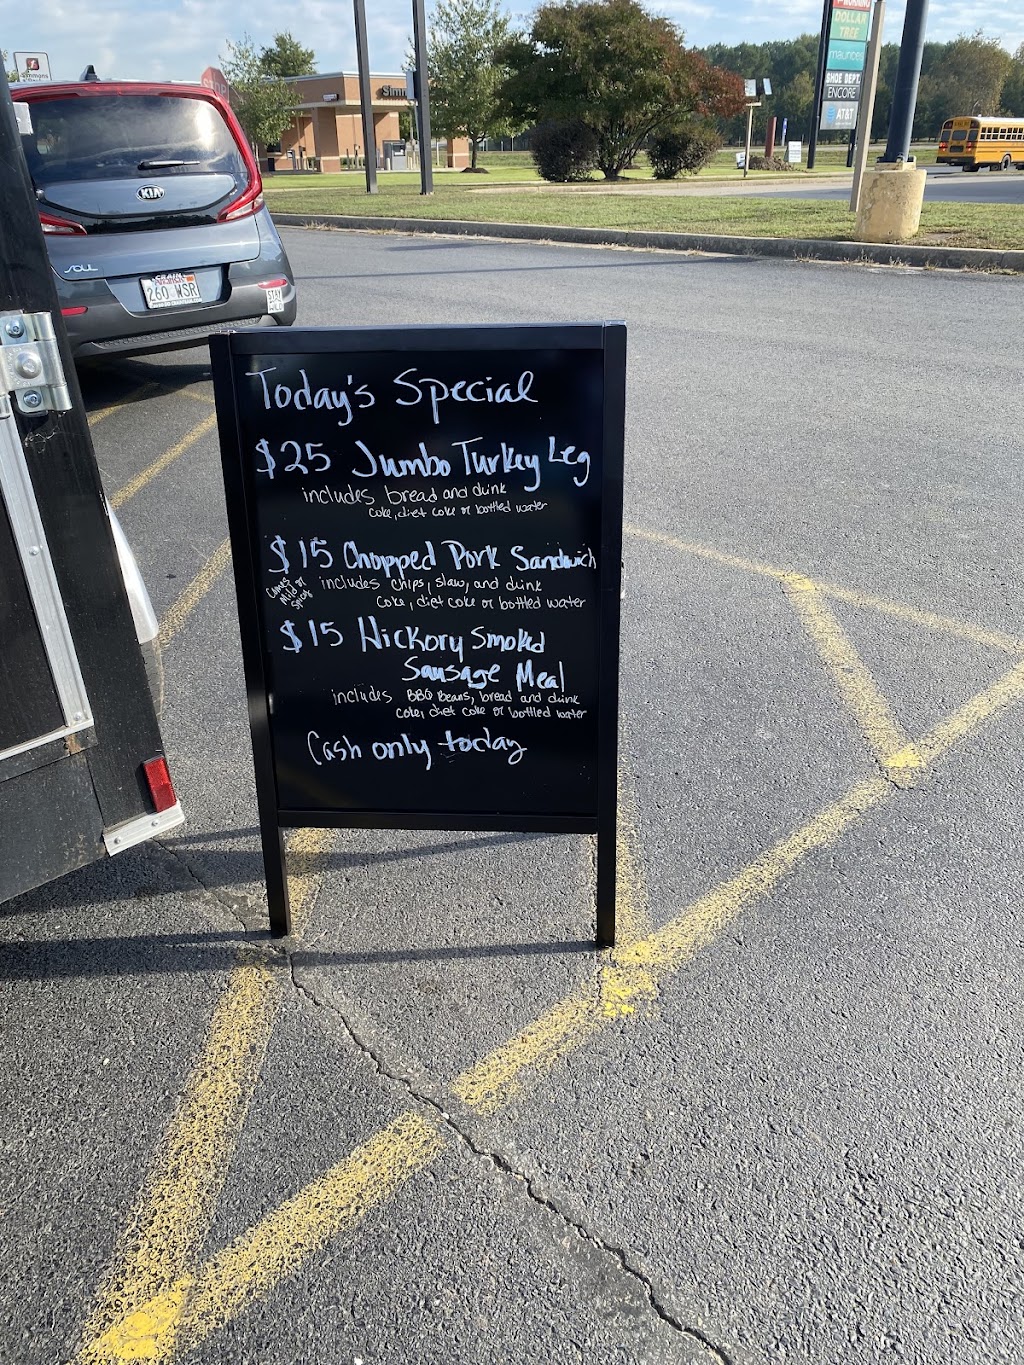 Simmons
Simm
DOLLAR
TREE
maurices
SHOE DEPT.
ENCORE
AT&T
KIA
SOUL
CRAIN
260 WSR
STAY
WILD
Today's Special
$25 Jumbo Turkey Leg
includes bread and drink
coke, diet coke or bottled water
$15 Chopped Pork Sandwich
Comes
Mild or
Spicy
includes chips, slaw, and drink
Coke, diet coke or bottled water
$15 Hickory Smoked
Sausage Meal
includes BBQ Beans, bread and drink
Coke, diet coke or bottled water
Cash only today